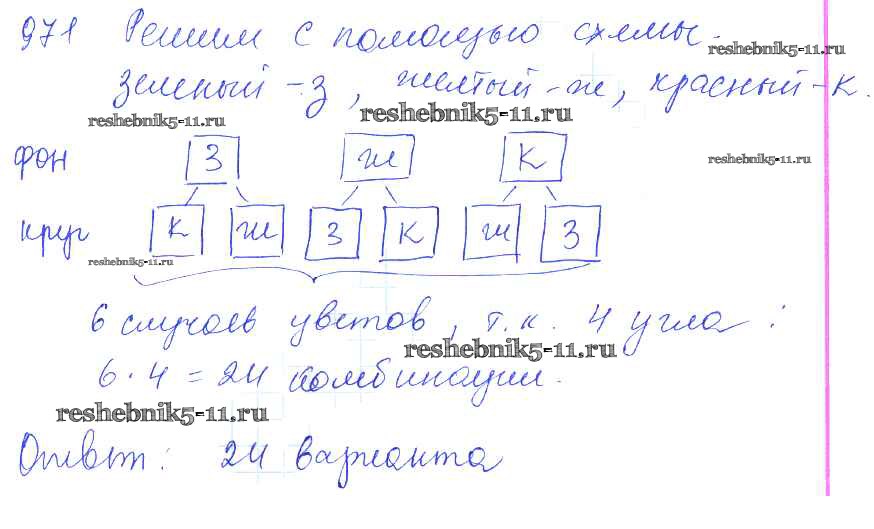 971 Решим с помощью схемы.
reshebnik5-11.ru
зеленый - з, желтый - ж, красный - к.
reshebnik5-11.ru
reshebnik5-11.ru
фон З Ж К
reshebnik5-11.ru
круг К Ж З К Ж З
reshebnik5-11.ru
6 случаев цветов, т.к. 4 угла :
reshebnik5-11.ru
6 · 4 = 24 комбинации.
reshebnik5-11.ru
Ответ: 24 варианта